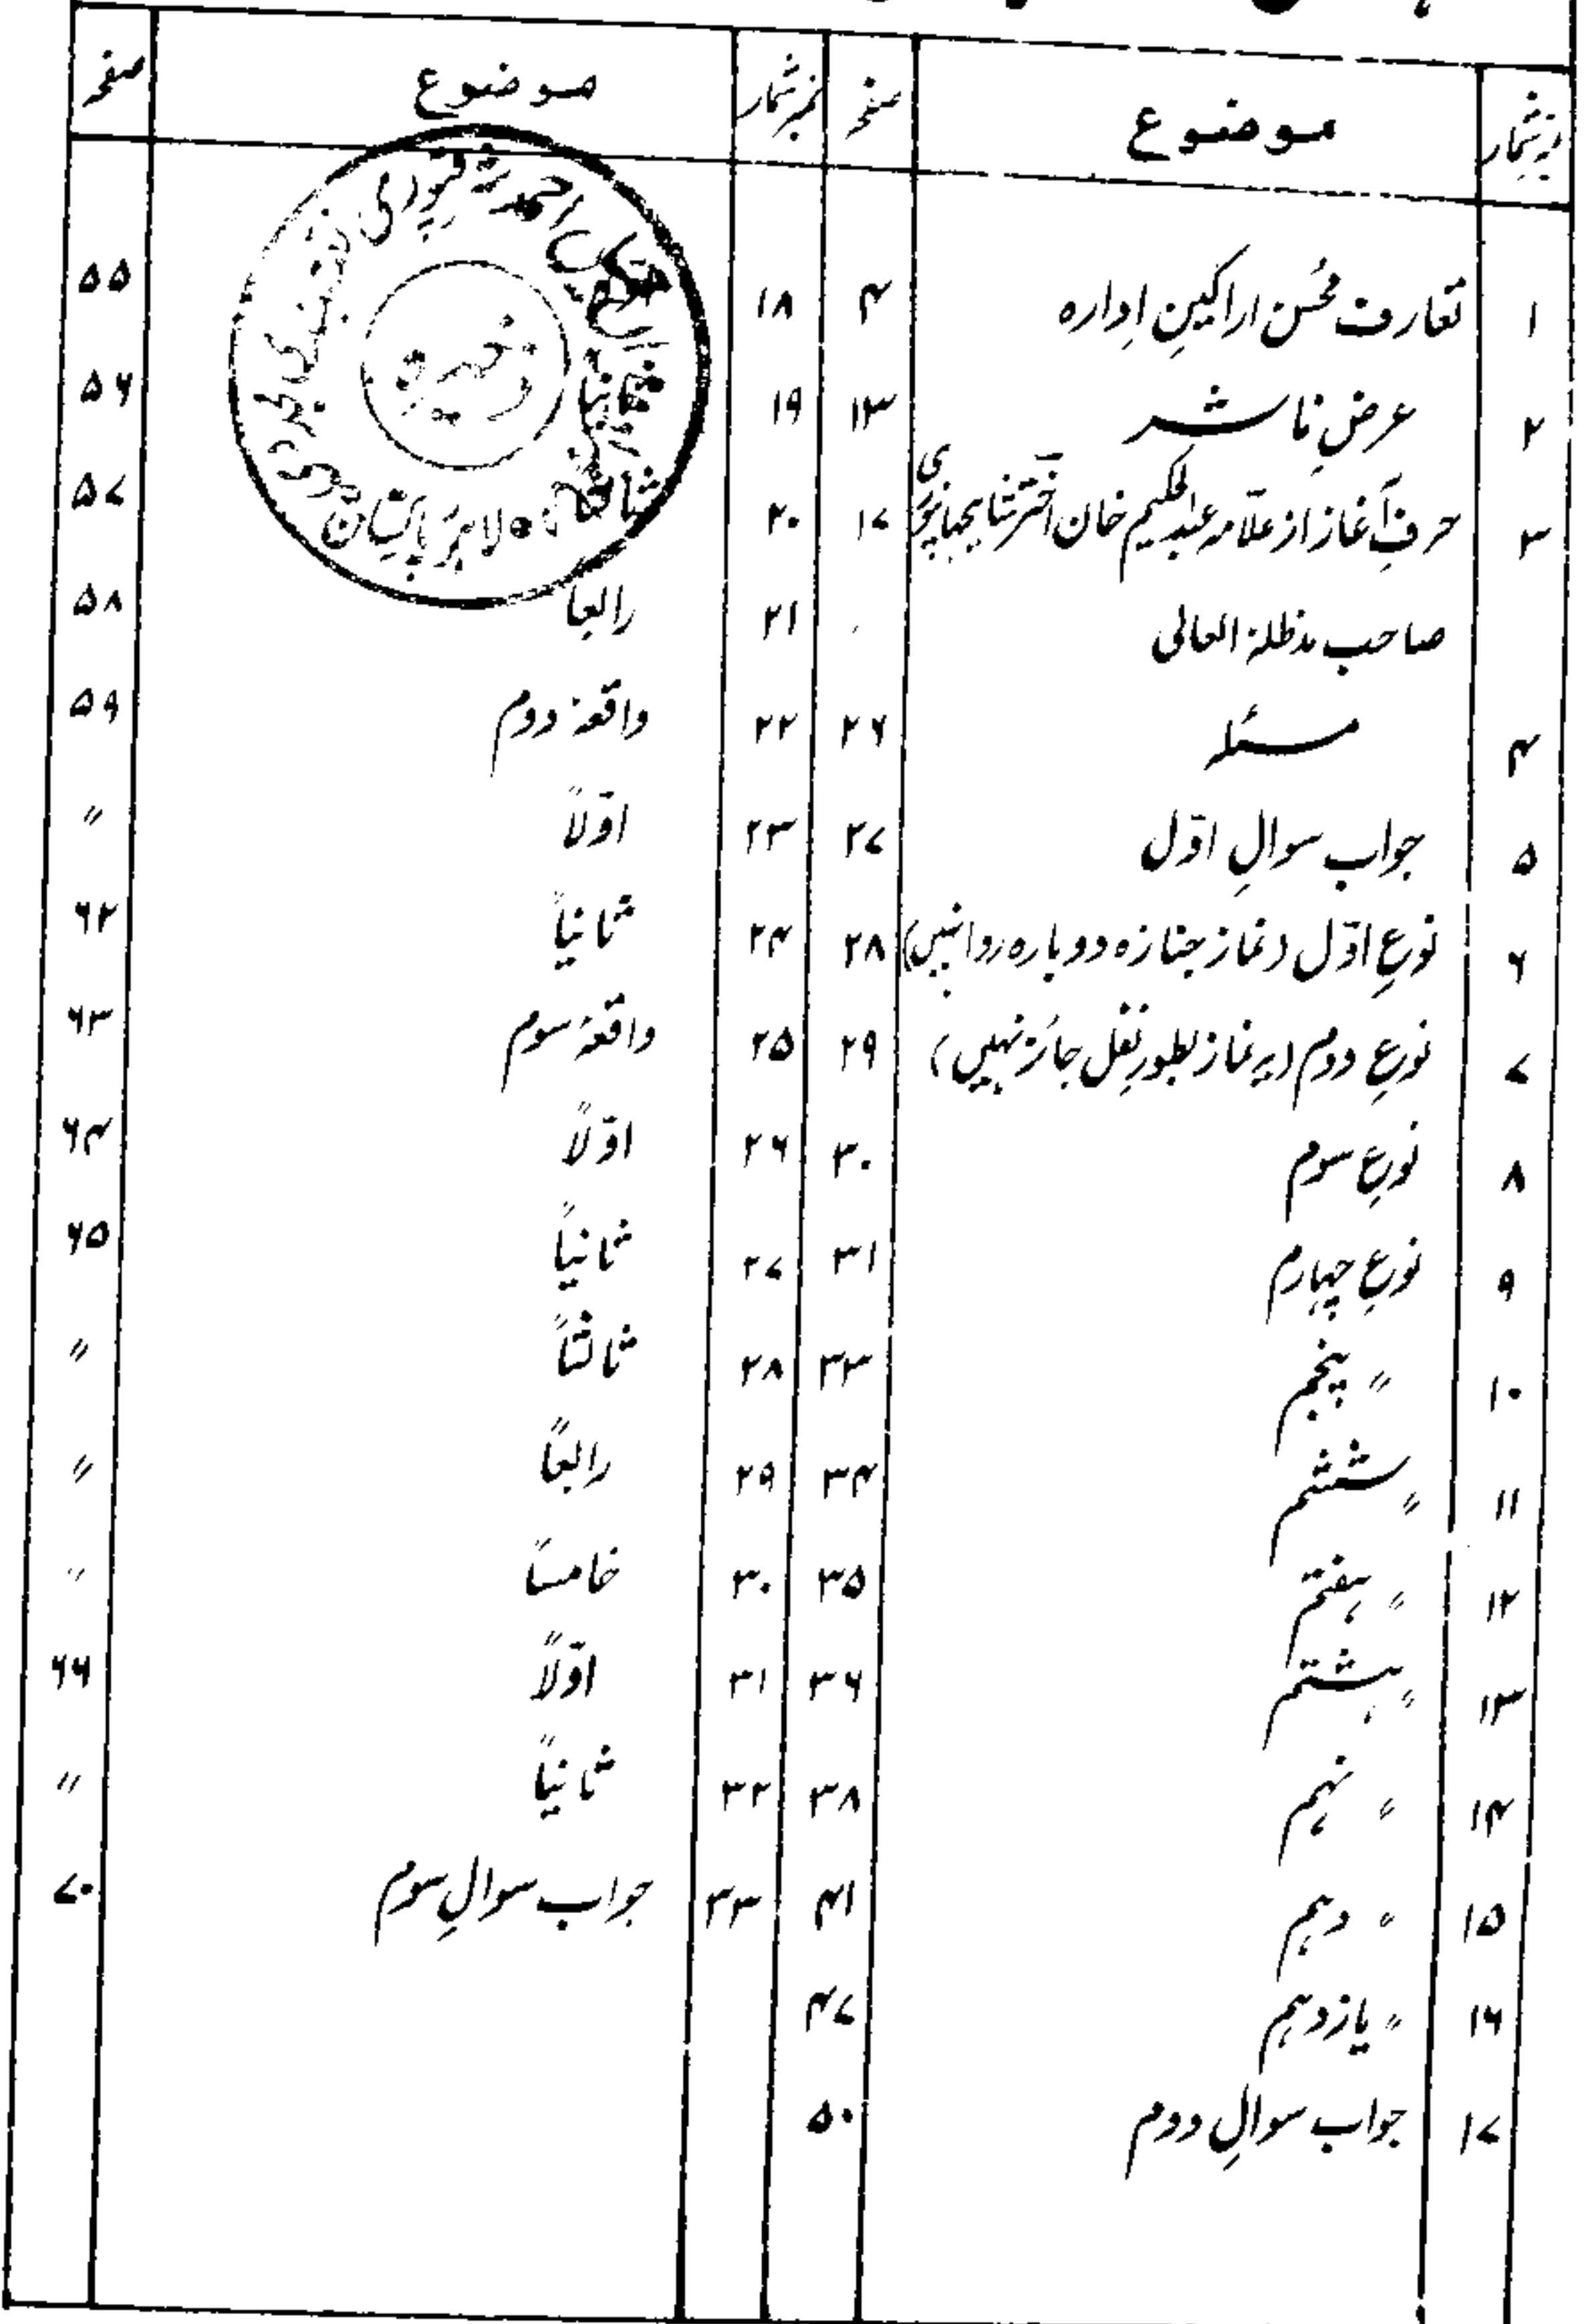 نمبر شمار موضوع صفحہ نمبر شمار موضوع صفحہ
۱ تعارف محسن اراکینِ ادارہ ۴
۲ عرضِ ناشر ۱۳
۳ حرفِ آغاز از علامہ عبدالحکیم خان اختر شاہجہانپوری ۱۷
صاحب مدظلہٗ العالی
۴ مسئلہ ۲۶
۵ جواب سوالِ اوّل ۲۷
۶ نوعِ اوّل (نماز جنازہ دوبارہ روا نہیں) ۲۸
۷ نوعِ دوم (یہ نماز بطور نفل جائز نہیں) ۲۹
۸ نوعِ سوم ۳۰
۹ نوعِ چہارم ۳۱
۱۰〃 پنجم ۳۳
۱۱〃 ششم ۳۴
۱۲〃 ہفتم ۳۵
۱۳〃 ہشتم ۳۶
۱۴〃 نہم ۳۸
۱۵〃 دہم ۴۱
۱۶〃 یازدہم ۴۷
۱۷ جواب سوالِ دوم ۵۰
۱۸ ۵۵
۱۹ ثانیاً ۵۶
۲۰ ثالثاً ۵۷
۲۱ رابعاً ۵۸
۲۲ واقعۂ دوم ۵۹
۲۳ اوّلاً 〃
۲۴ ثانیاً ۶۲
۲۵ واقعۂ سوم ۶۳
۲۶ اوّلاً ۶۴
۲۷ ثانیاً ۶۵
۲۸ ثالثاً 〃
۲۹ رابعاً 〃
۳۰ خامساً 〃
۳۱ اوّلاً ۶۶
۳۲ ثانیاً 〃
۳۳ جواب سوالِ سوم ۷۰
لاہور پاکستان